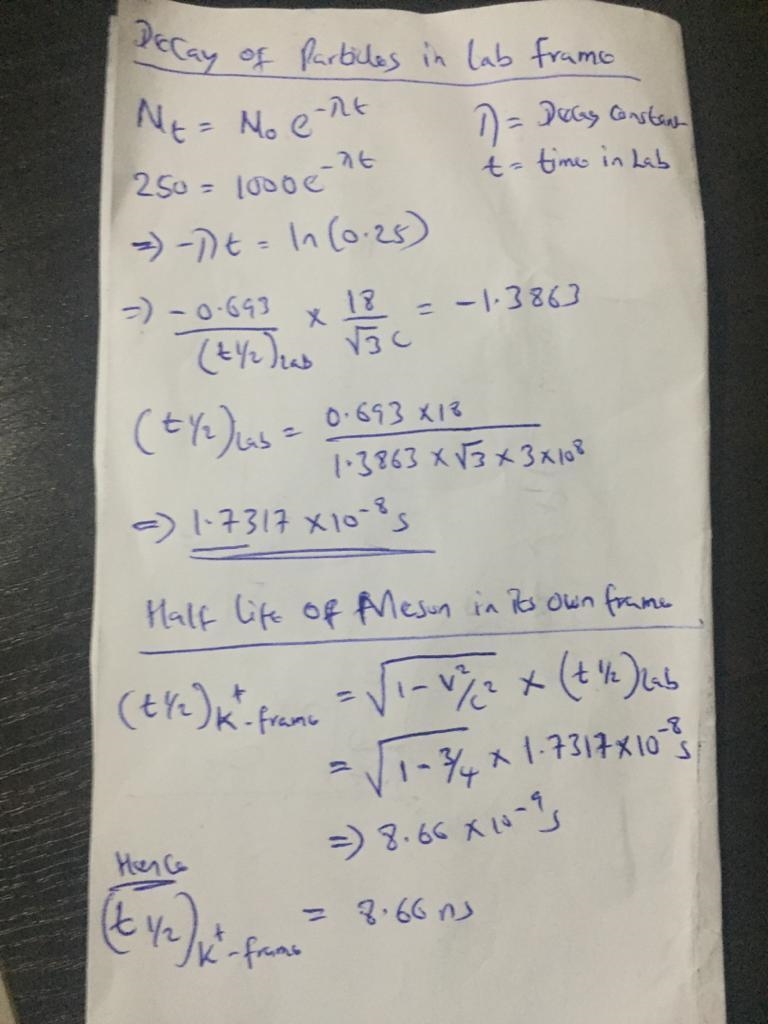 Decay of Particles in lab frame
Nt = N₀ e^-λt
λ = Decay Constant
250 = 1000e^-λt
t = time in Lab
=> -λt = ln(0.25)
=> -0.693/(t½)Lab × 18/√3c = -1.3863
(t½)Lab = 0.693 × 18 / 1.3863 × √3 × 3×10⁸
=> 1.7317 × 10⁻⁸ s
Half life of Meson in its own frame
(t½)K⁺-frame = √1-v²/c² × (t½)Lab
= √1-3/4 × 1.7317×10⁻⁸ s
=> 8.66 × 10⁻⁹ s
Hence
(t½)K⁺-frame = 8.66 ns